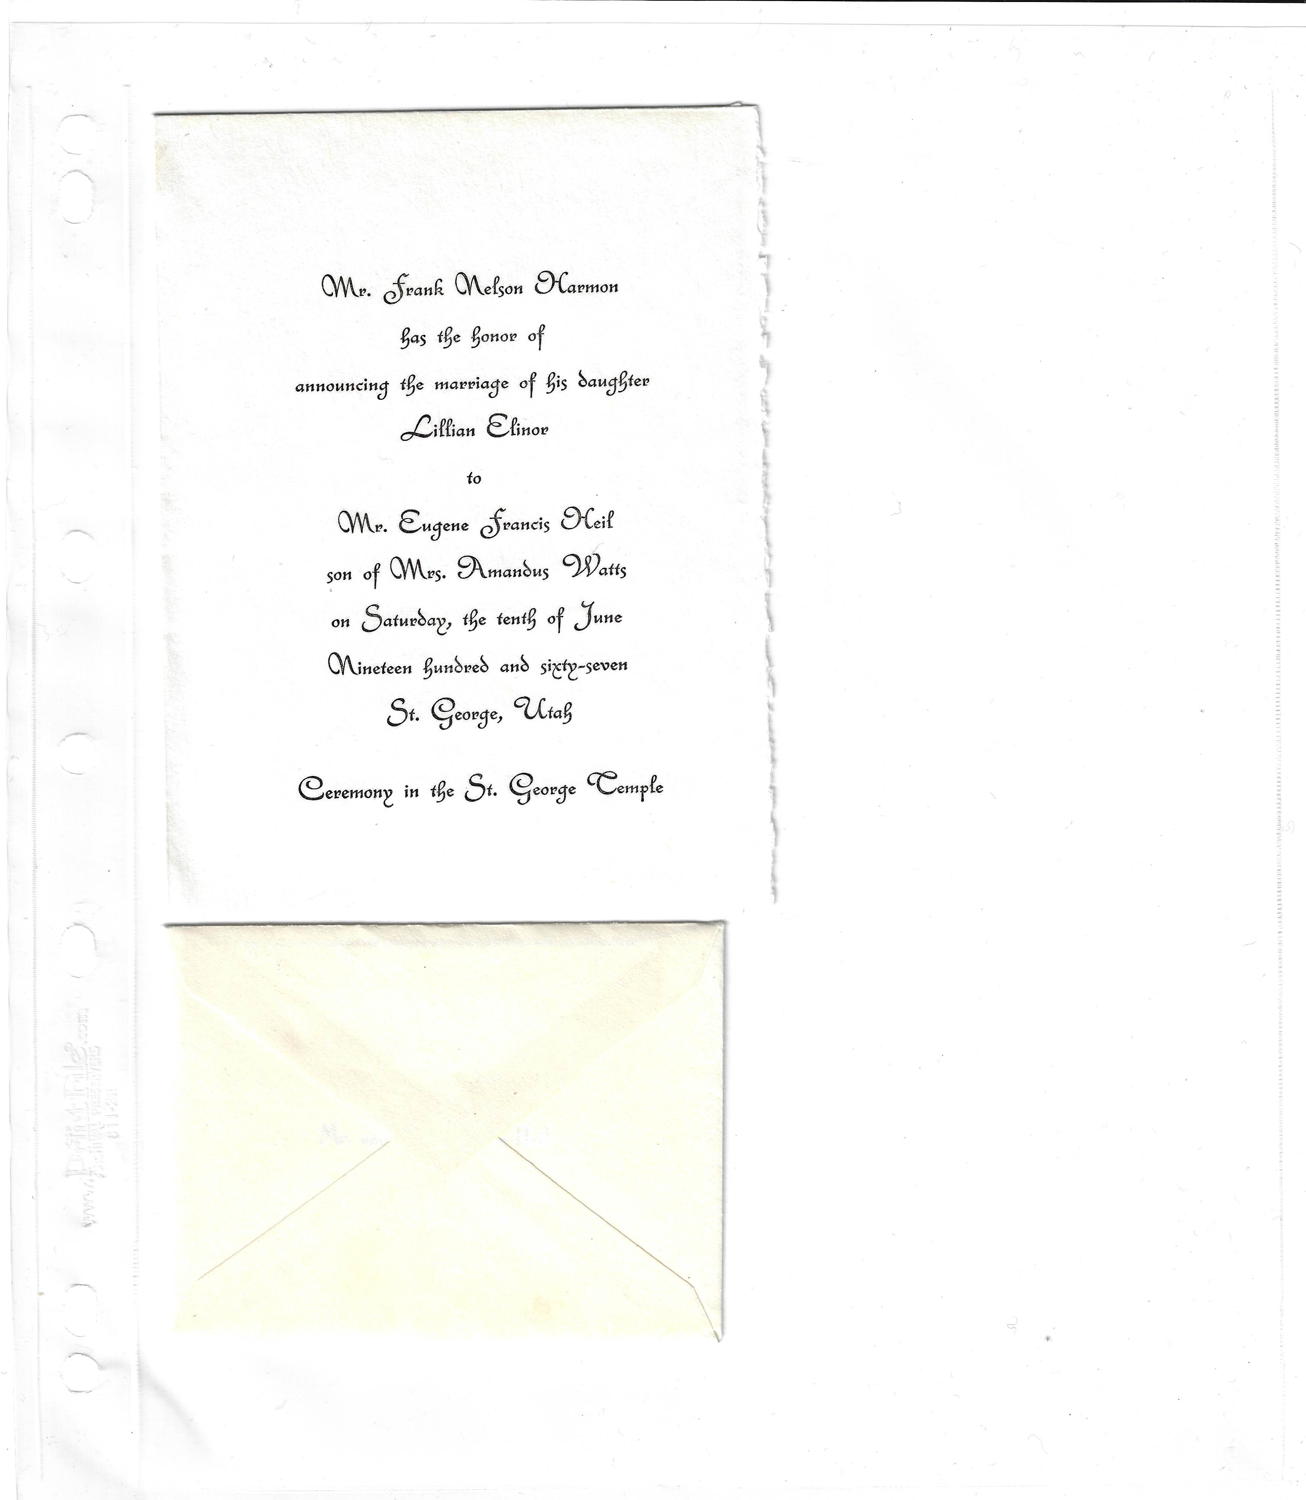 Mr. Frank Nelson Harmon
has the honor of
announcing the marriage of his daughter
Lillian Elinor
to
Mr. Eugene Francis Heil
son of Mrs. Amandus Watts
on Saturday, the tenth of June
Nineteen hundred and sixty-seven
St. George, Utah
Ceremony in the St. George Temple
www.PrintFile.com